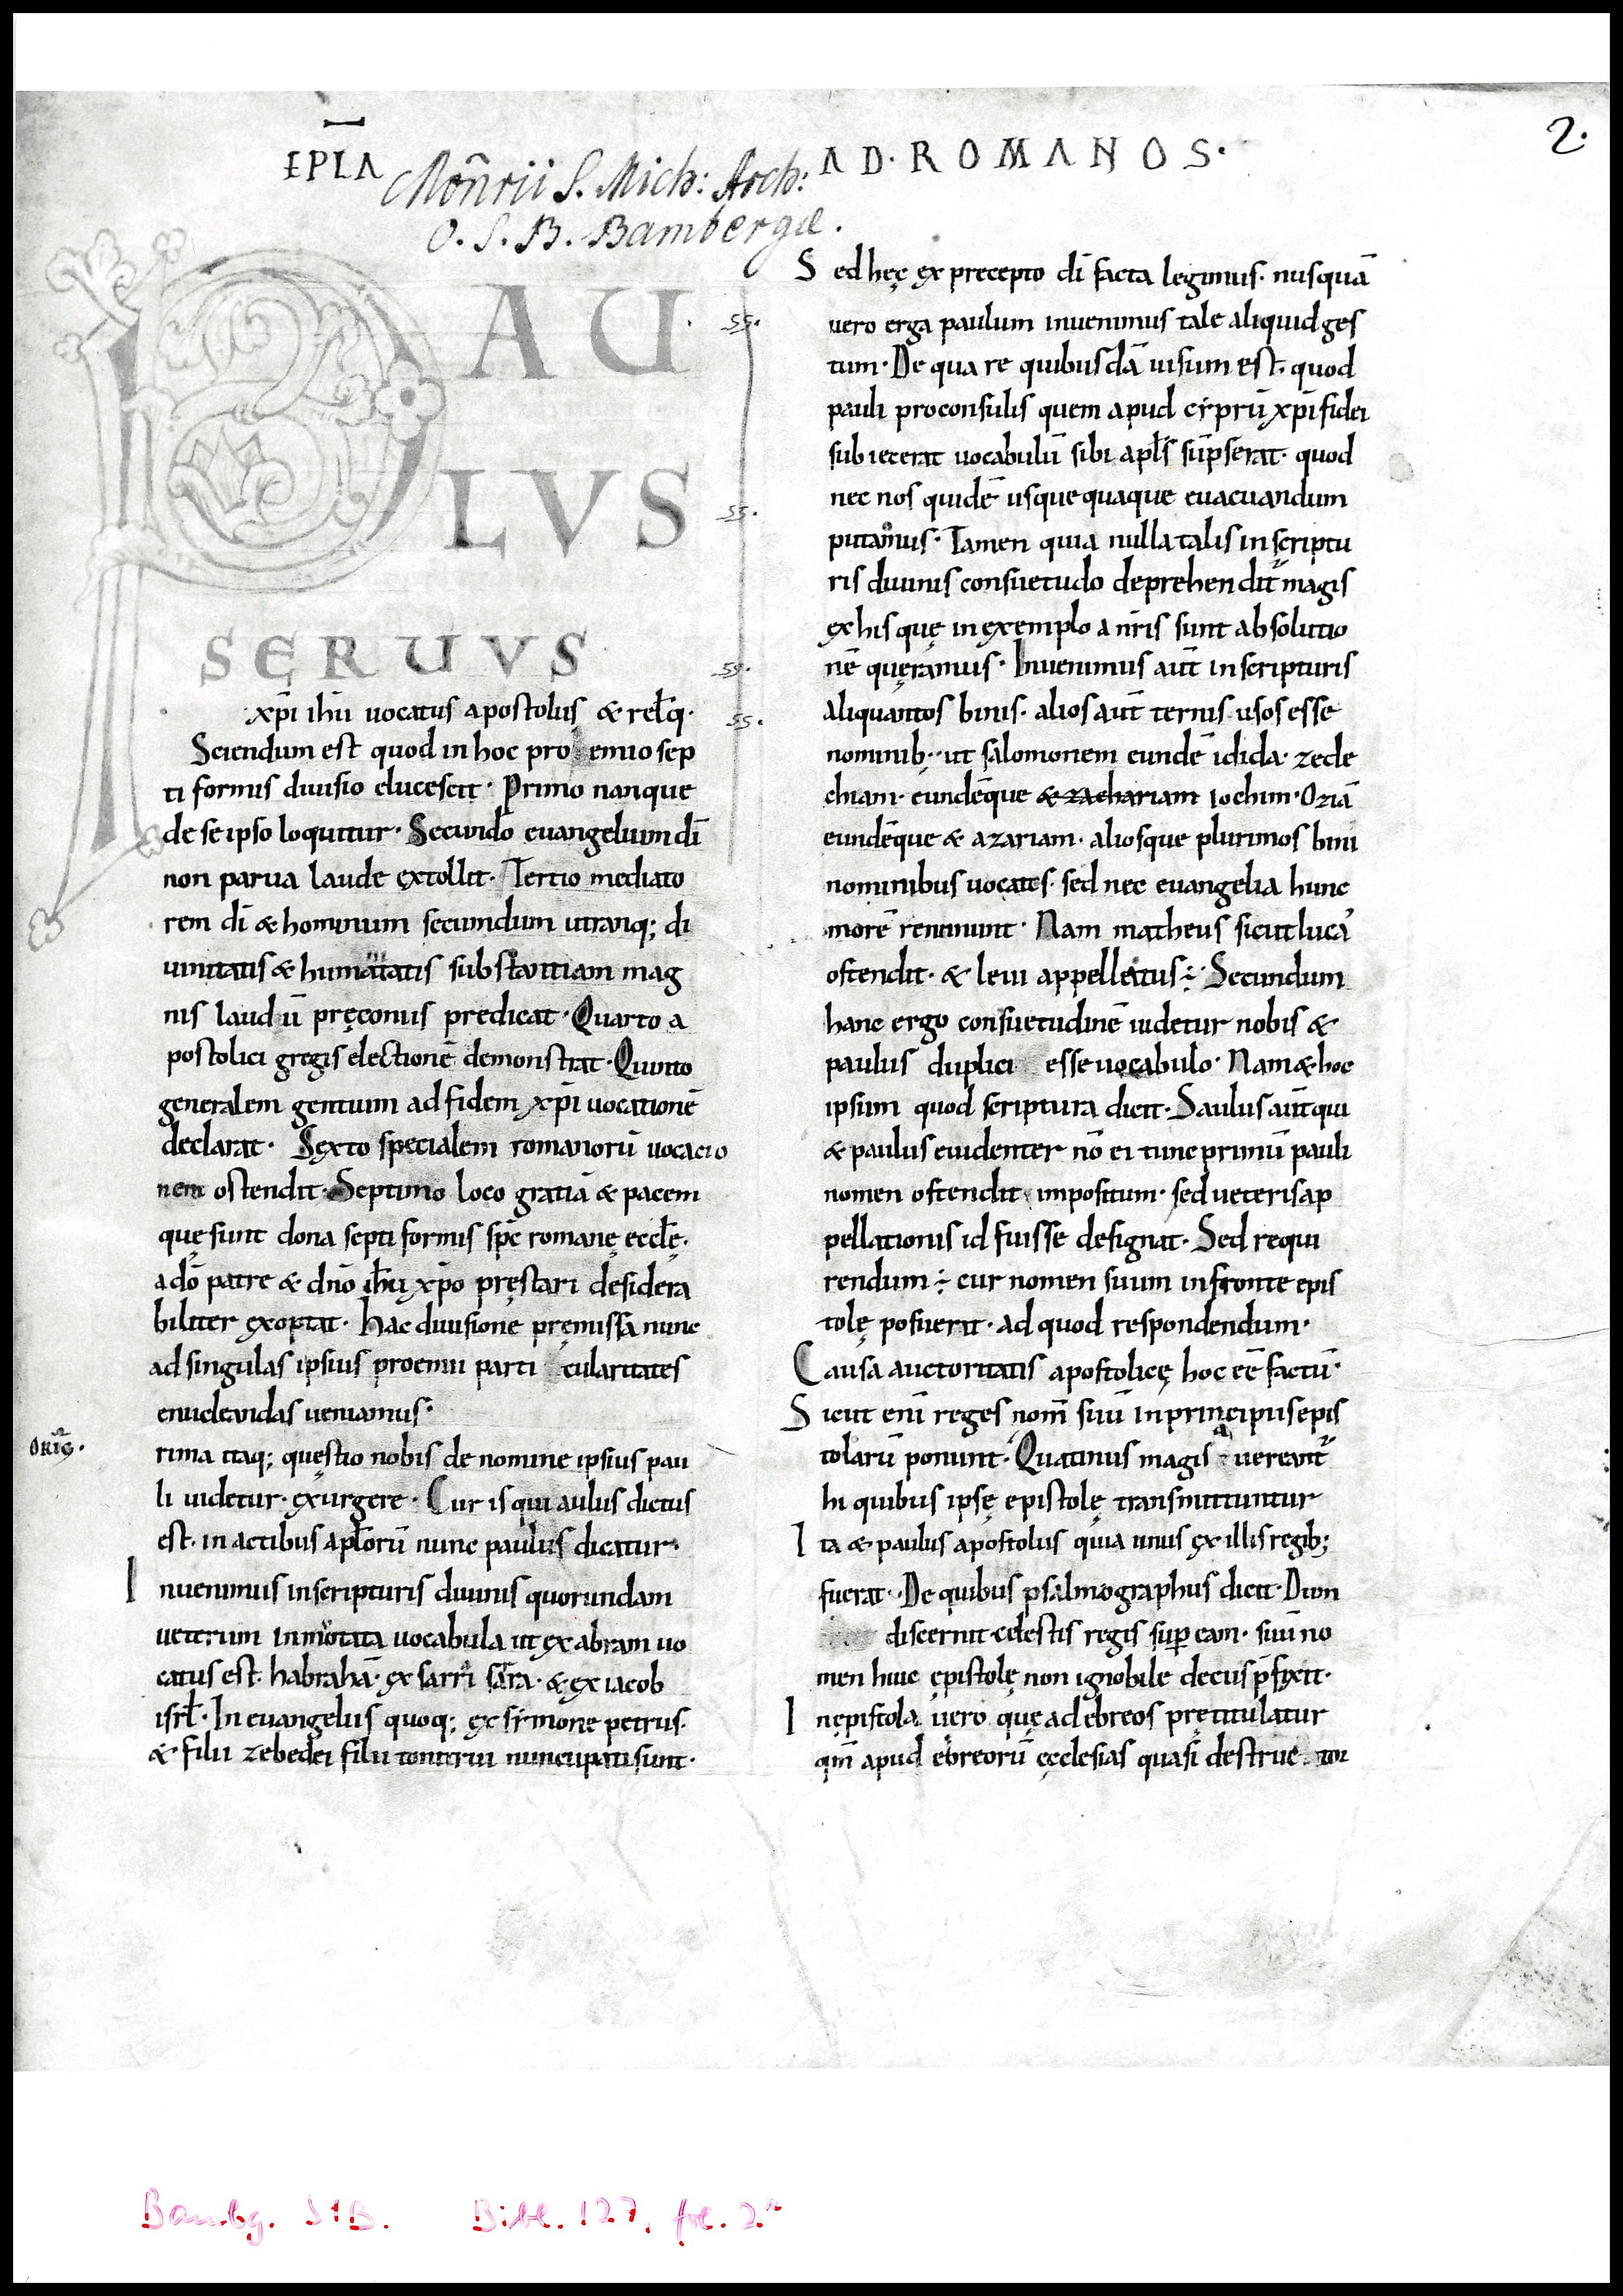 2.
EPLA AD·ROMANOS·
Moñrii S. Mich: Arch:
O. S. B. Bambergæ.
PAU
LVS
SERUVS
xp̄i ihū uocatus apostolus & relq̄·
Sciendum est quod in hoc pro emio sep
ti formis diuisio elucescit· Primo nanque
de se ipso loquitur· Secundo euangelium dī
non parua laude extollit· Tertio mediato
rem dī & hominum secundum utranq; di
uinitatis & humanitatis substantiam mag
nis laudū pręconiis predicat· Quarto a
postolici gregis electionē demonstrat· Quinto
generalem gentium ad fidem xp̄i uocationē
declarat· Sexto specialem romanorū uocacio
nem ostendit· Septimo loco gratiā & pacem
quę sunt dona septiformis sp̄c romanę ecclę·
a dō patre & dnō ihū xp̄o pręstari desidera
biliter exoptat· Hac diuisione pręmissa nunc
ad singulas ipsius proemii parti cularitates
enucleandas ueniamus·
ORIḠ·
rima itaq; questio nobis de nomine ipsius pau
li uidetur· exurgere· Cur is qui saulus dictus
est· in actibus aplōrū nunc paulus dicatur·
Inuenimus in scripturis diuinis quorundam
ueterum inmotata uocabula ut ex abram uo
catus est habrahā· ex sarrai sara· & ex iacob
isrl̄· In euangeliis quoq; ex simone petrus·
& filii zebedei filii tonitrui nuncupati sunt·
Sed hęc ex precepto dī facta legimus· nusquā
uero erga paulum inuenimus tale aliquid ges
tum· De qua re quibusdā uisum est· quod
pauli proconsulis quem apud cẏprū xp̄i fidei
subiecerat uocabulū sibi apls̄ sūpserat· quod
nec nos quidē usquequaque euacuandum
putamus· Tamen quia nulla talis in scriptu
ris diuinis consuetudo deprehendit᷑ magis
ex his quę in exemplo a nr̄is sunt absolutio
nē queramus· Inuenimus aūt in scripturis
aliquantos binis· alios aūt ternis usos esse
nominib;· ut salomonem eundē idida· zede
chiam· eundēque & zachariam iochim· Oziā
eundēque & azariam· aliosque plurimos bini
nominibus uocates· sed nec euangelia hunc
morē rennuunt· Nam matheus sicut lucas
ostendit· & leui appellatus ÷· Secundum
hanc ergo consuetudinē uidetur nobis &
paulus duplici esse uocabulo· Nam & hoc
ipsum quod scriptura dicit· Saulus aūt qui
& paulus euidenter nō ei tunc primū pauli
nomen ostendit impositum· sed ueteris ap
pellationis id fuisse designat· Sed requi
rendum ÷ cur nomen suum in fronte epis
tolę posuerit· ad quod respondendum·
Causa auctoritatis apostolicę hoc eē factū·
Sicut enī reges nom̄ suū in principiis epis
tolarū ponunt· Quatinus magis uereant᷑
hi quibus ipsę epistolę transmittuntur
Ita & paulus apostolus quia unus ex illis regib;
fuerat· De quibus psalmographus dicit· Dum
discernit celestis regis sup̄ eam· suū no
men huic epistolę non ignobile decus p̄fixit·
In epistola uero quę ad ebreos prętitulatur
qm̄ apud ebreorū ecclesias quasi destruc tor
Bambg. StB. Bibl. 127, fol. 2r